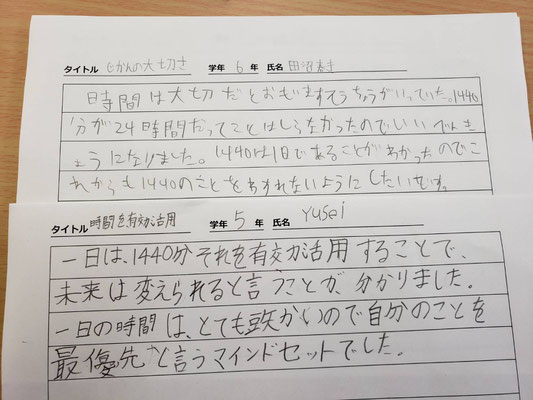 タイトル じかんの大切さ 学年 6 年 氏名 田沼
時間は大切だとおもいますそうちょうがいっていた。1440
分が24時間だってことはしらなかったのでいいべんき
ょうになりました。1440は1日であることがわかったのでこ
れからも1440のことをわすれないようにしたいです。
タイトル 時間を有効活用 学年 5 年 氏名 Yusei
一日は、1440分それを有効活用することで、
未来は変えられると言うことが、分かりました。
一日の時間は、とても かいので自分のことを
最優先と言うマインドセットでした。